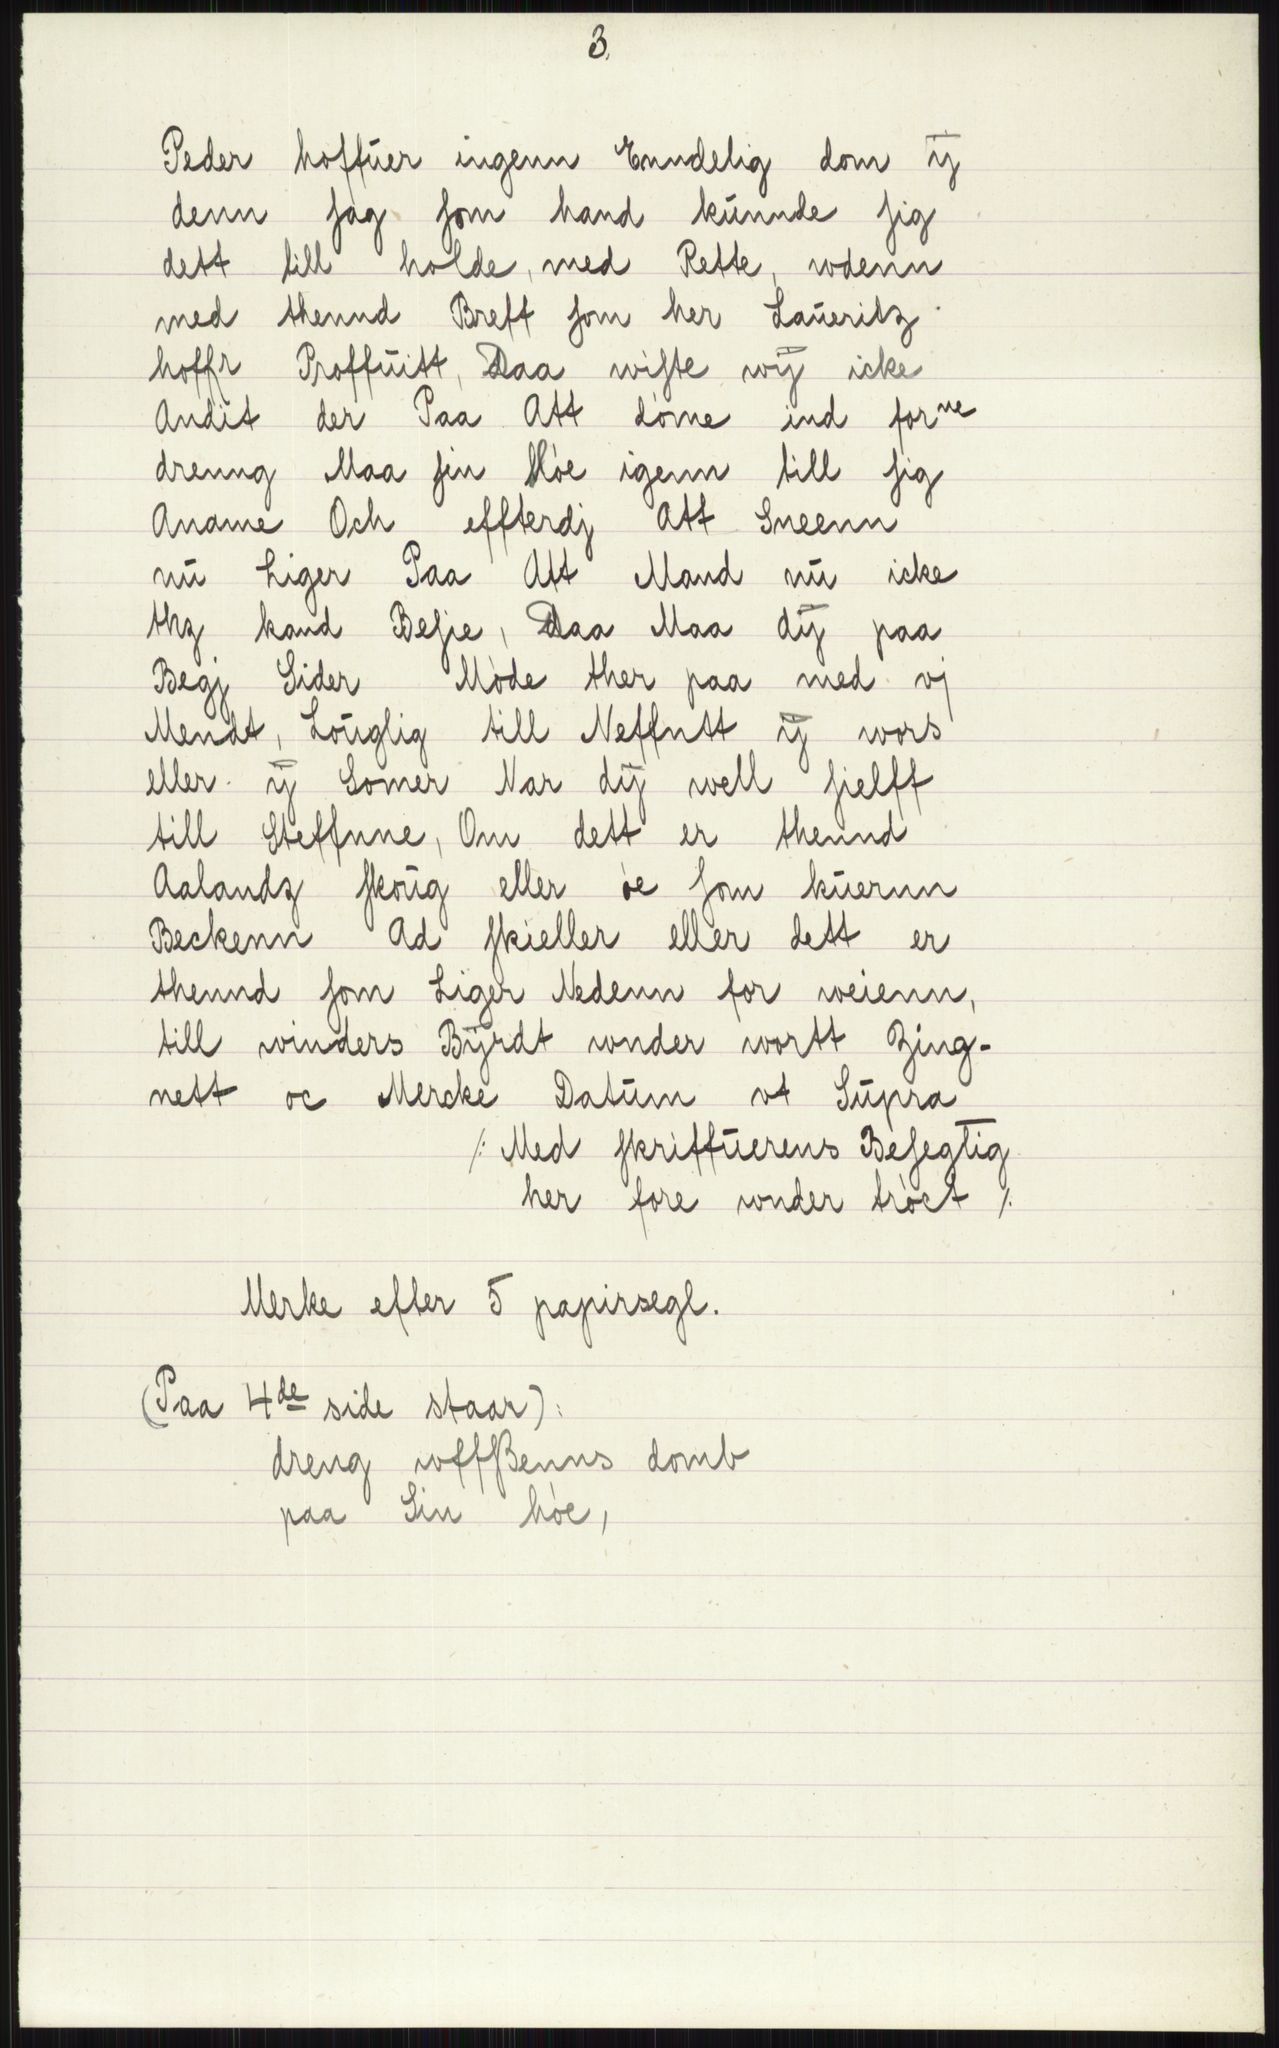 3.
Peder hoffuer ingenn Enndelig dom ÿ
denn sag som hand kunnde sig
dett till holde, med Rette, wdenn
med thennd Breff som her Laueritz
hoffr Proffuitt, Daa wiste wÿ icke
Andit der Paa Att døme ind forne
drenng Maa sin Høe igenn till sig
Aname Och effterdj Att Sneenn
nu Liger Paa Att Mand nu icke
thz kand Besie, Daa Maa dÿ paa
Begj Sider Møde ther paa med vj
Mendt, Louglig till Neffntt ÿ wors
eller ÿ Somer Nar dÿ well sielff
till Steffnne, Om dett er thennd
Aalandz skoug eller øe som kuernn
Beckenn Ad skieller eller dett er
thennd som Liger Nedenn for weienn,
till winders Byrdt wnder wortt Zing-
nett oc Mercke Datum vt Supra
/: Med skriffuerens Besegtig
her fore wnder trøct /:
Merke efter 5 papirsegl.
(Paa 4de side staar):
dreng wffssenns domb
paa Sin høe,